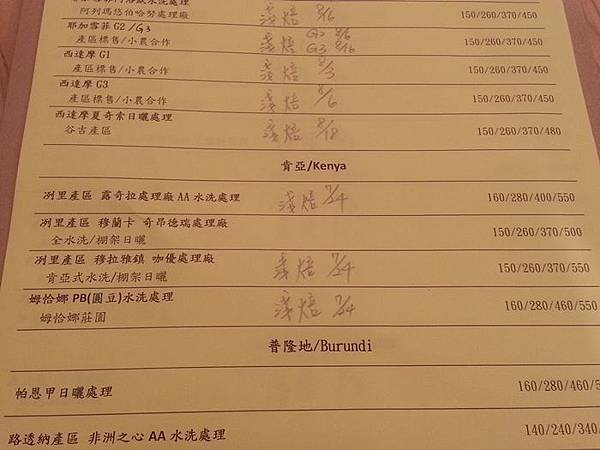 阿列瑪悠伯哈努處理廠 淺焙 8/6 150/260/370/450
耶加雪菲 G2/G3 G2 8/6
產區標售/小農合作 淺焙 G3 8/16 150/260/370/450
西達摩 G1
產區標售/小農合作 淺焙 8/3 150/260/370/450
西達摩 G3
產區標售/小農合作 淺焙 8/6 150/260/370/450
西達摩夏奇索日曬處理
谷吉產區 淺焙 8/18 150/260/370/480
肯亞/Kenya
冽里產區 露奇拉處理廠 AA 水洗處理 淺焙 7/24 160/280/400/550
冽里產區 穆蘭卡 奇昂德瑞處理廠
全水洗/棚架日曬 150/260/370/500
冽里產區 穆拉雅鎮 咖優處理廠
肯亞式水洗/棚架日曬 淺焙 7/24 150/260/370/550
姆恰娜 PB(圓豆)水洗處理
姆恰娜莊園 淺焙 7/24 160/280/460/550
普隆地/Burundi
帕恩甲日曬處理 160/280/460/5
路透納產區 非洲之心 AA 水洗處理 140/240/340/